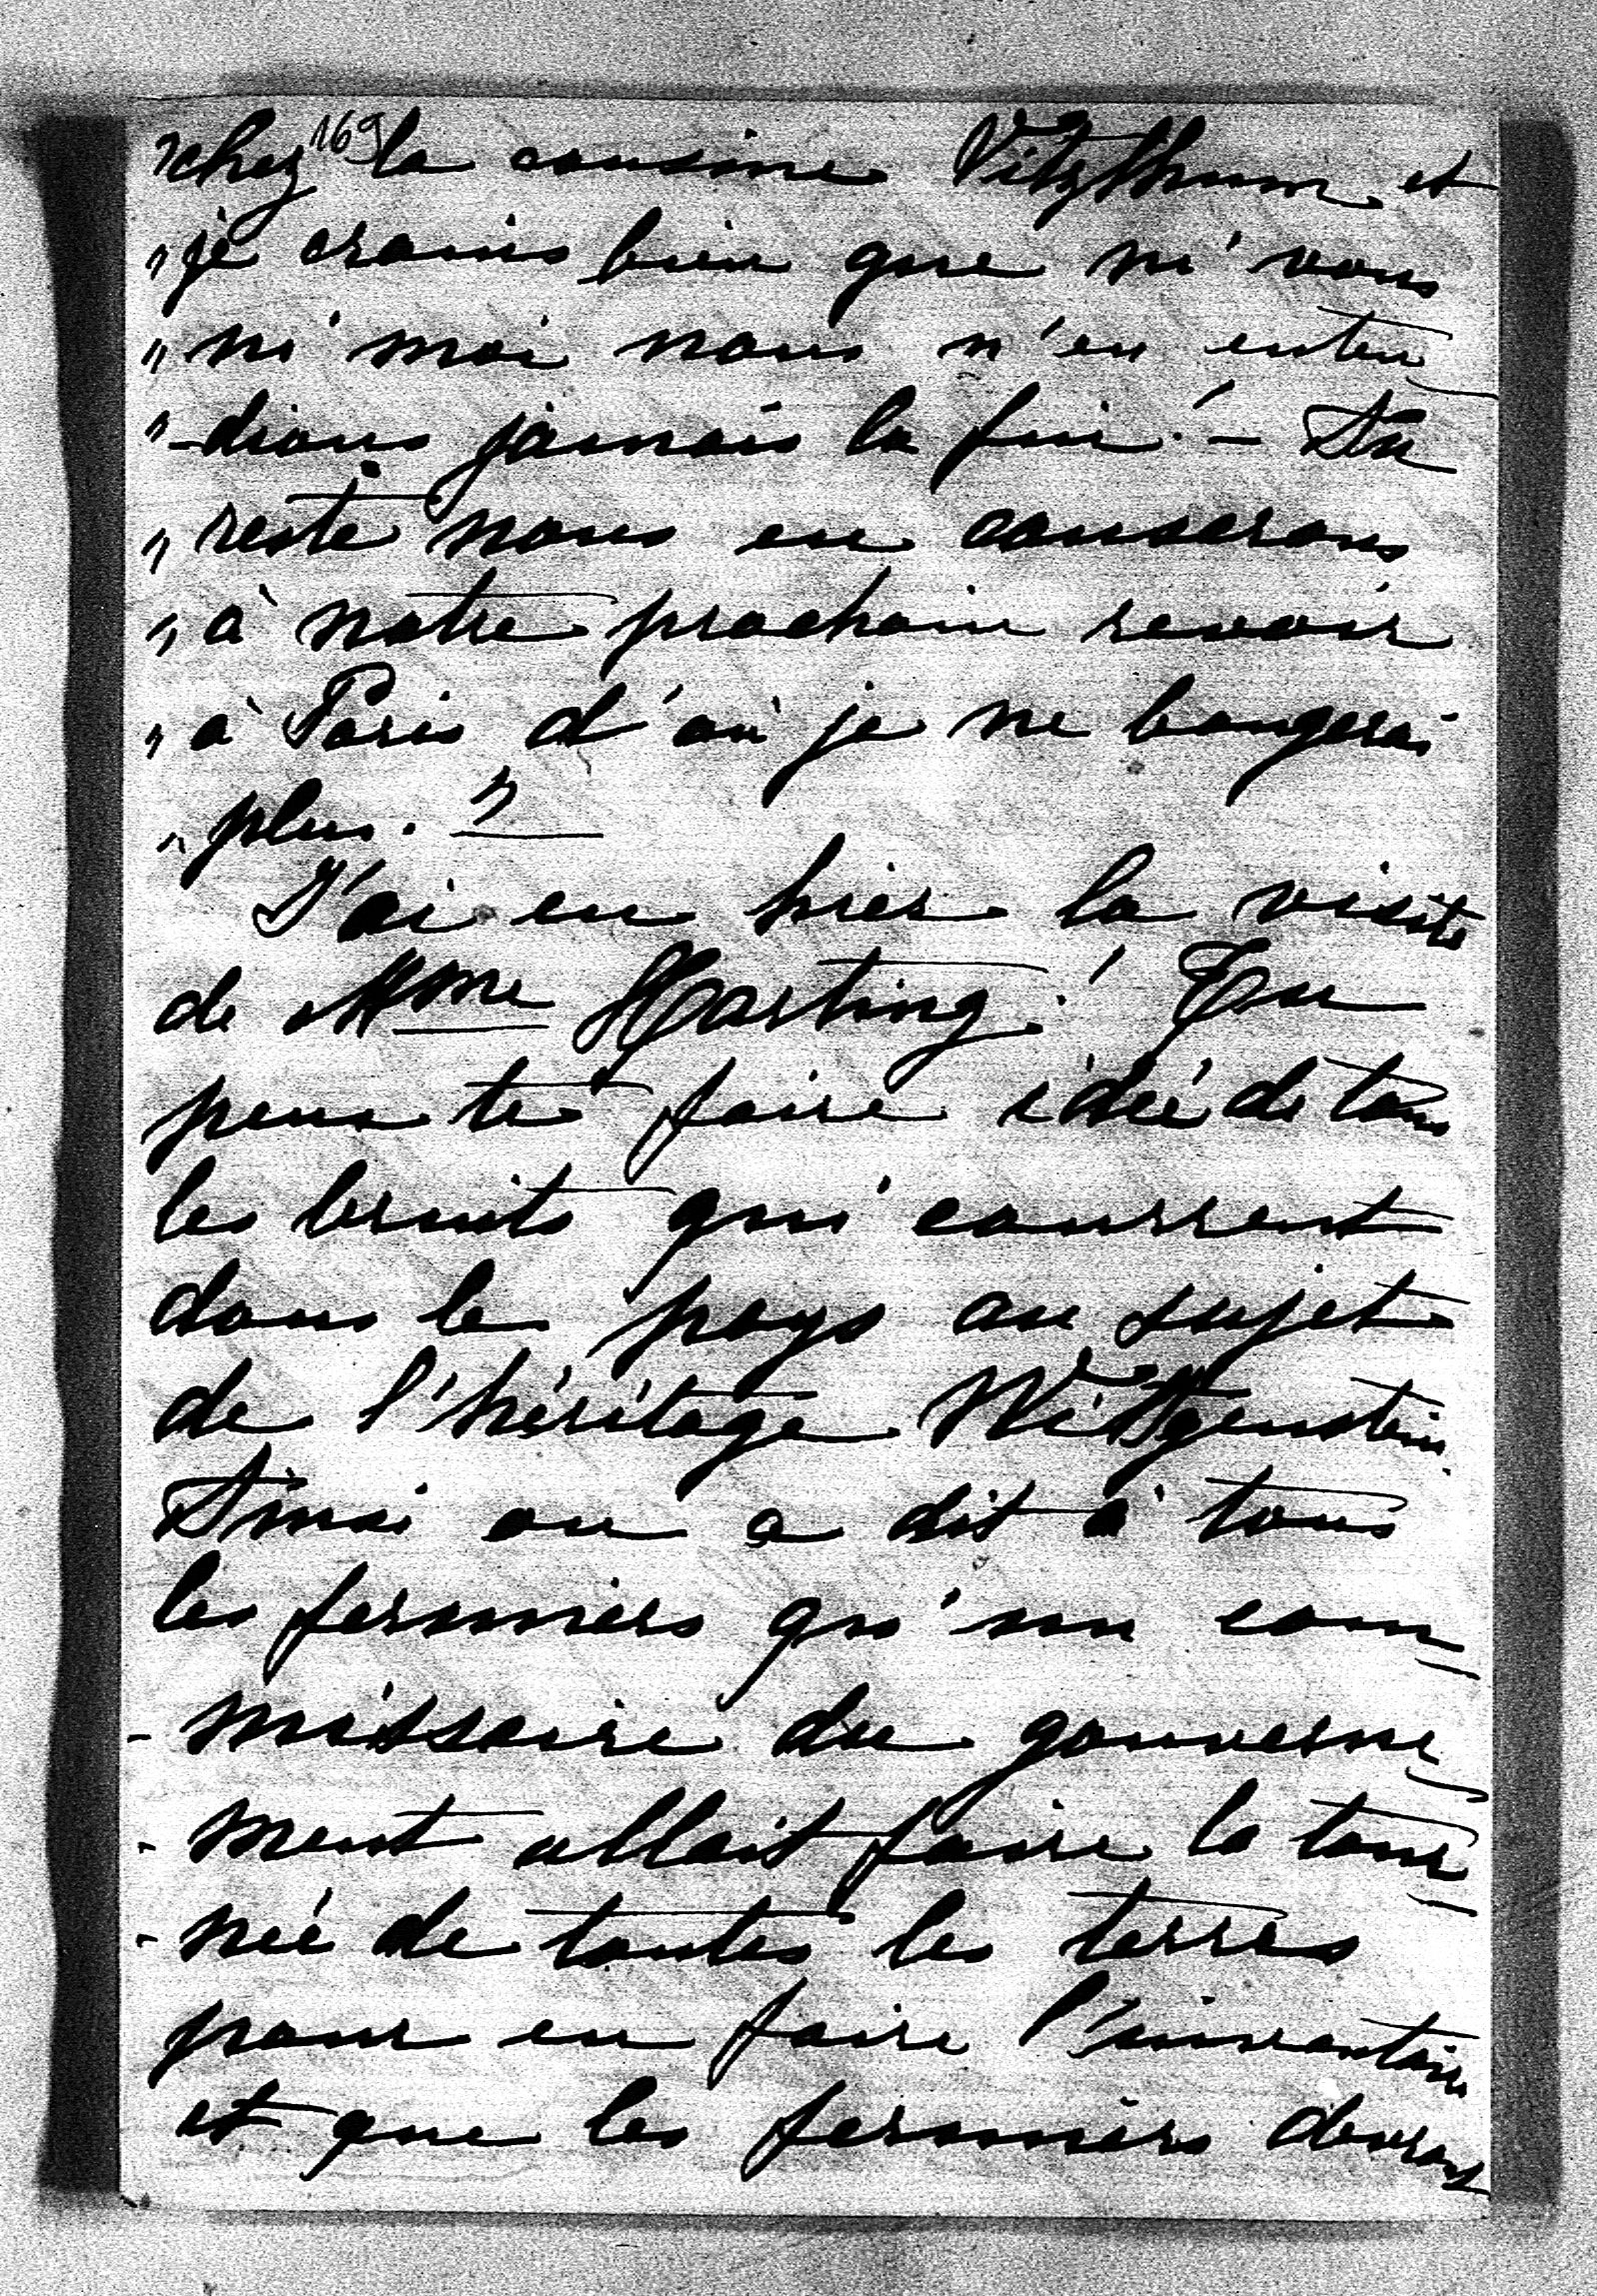 169
"chez la cousine Vitzthum et
" je crains bien que ni vous
" ni moi nous n'en enten
"-dions jamais la fin! — Du
" reste nous en causerons
" à notre prochain revoir
" à Paris d'où je ne bougerai
" plus. "
J'ai eu hier la visite
de Mme Harting! Tu
peux te faire idée de tous
les bruits qui courrent
dans le pays au sujet
de l'héritage Wittgenstein.
Ainsi on a dit à tous
les fermiers qu'un com
-missaire du gouverne
-ment allait faire la tour
-née de toutes les terres
pour en faire l'inventaire
et que les fermiers devront